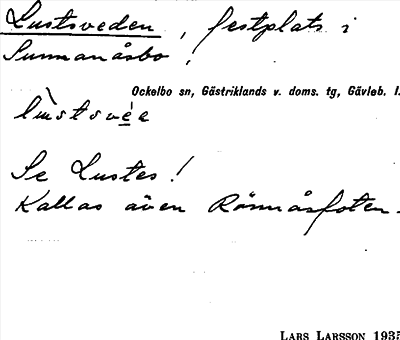 Lustsveden, festplats i
Sunnanåsbo!
Ockelbo sn, Gästriklands v. doms. tg, Gävleb. l.
Se Lustes!
Kallas även Rönnåsfoten.
LARS LARSSON 1935